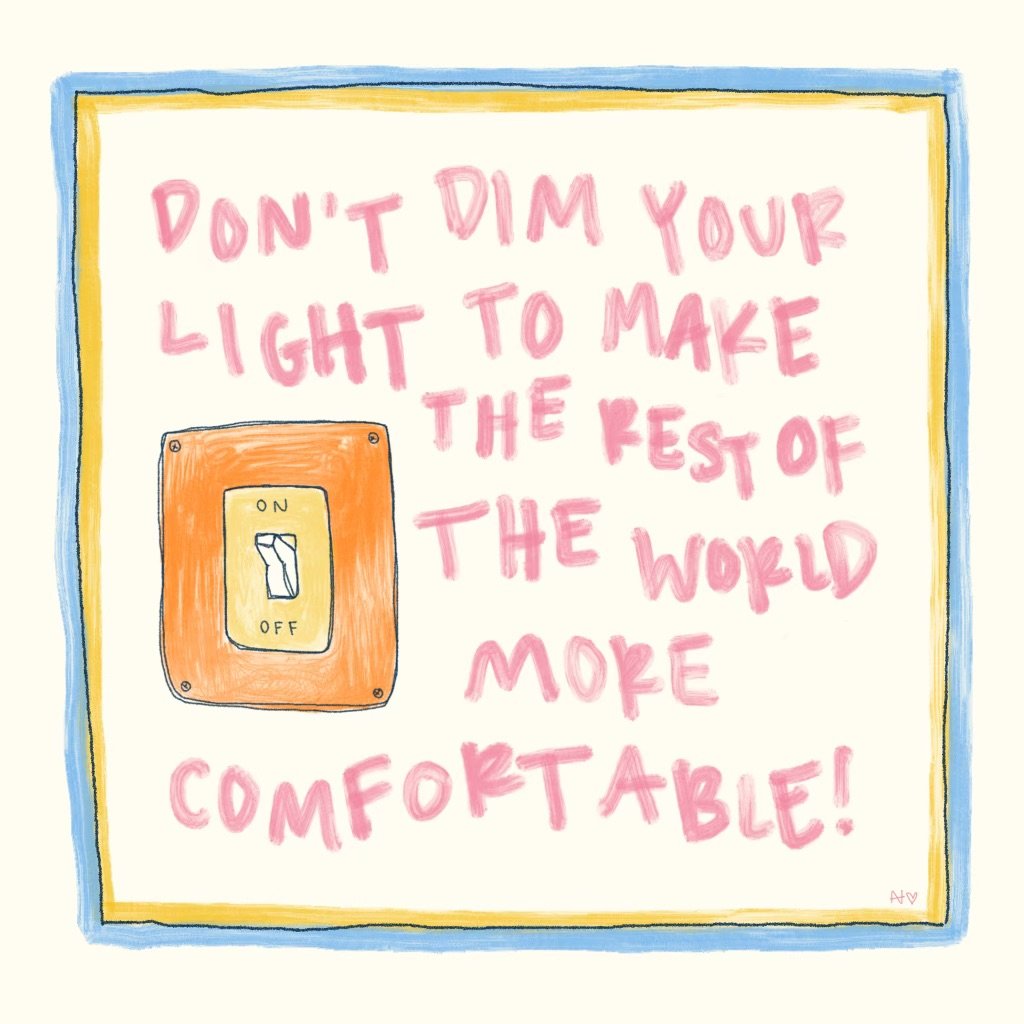 DON'T DIM YOUR
LIGHT TO MAKE
THE REST OF
THE WORLD
MORE
COMFORTABLE!
ON
OFF